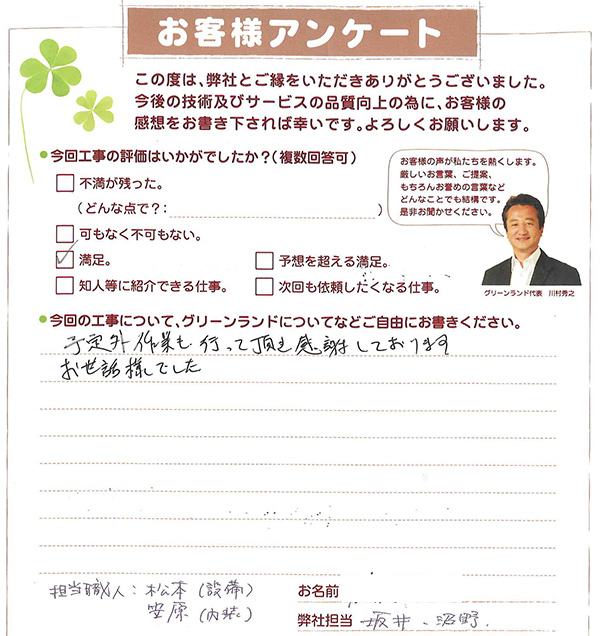 お客様アンケート
この度は、弊社とご縁をいただきありがとうございました。
今後の技術及びサービスの品質向上の為に、お客様の
感想をお書き下されば幸いです。よろしくお願いします。
今回工事の評価はいかがでしたか?(複数回答可)
不満が残った。
(どんな点で?: )
可もなく不可もない。
満足。
予想を超える満足。
知人等に紹介できる仕事。
次回も依頼したくなる仕事。
お客様の声が私たちを熱くします。
厳しいお言葉、ご提案、
もちろんお誉めの言葉など
どんなことでも結構です。
是非お聞かせください。
グリーンランド代表 川村秀之
今回の工事について、グリーンランドについてなどご自由にお書きください。
予定外作業も行って頂き感謝しております
お世話様でした
担当職人:松本(設備)
笠原(内装)
お名前
弊社担当 坂井、沼野